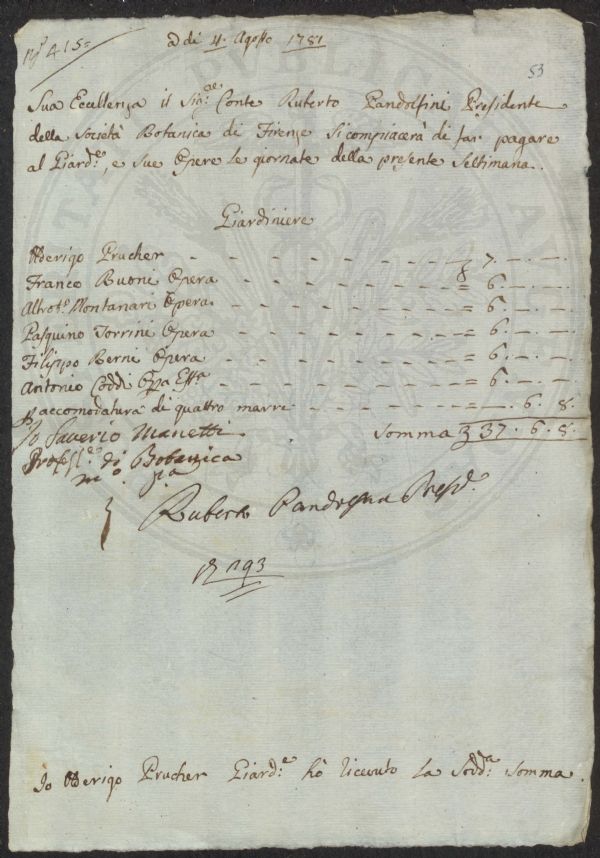 N.º 415=
a dì 4. Agosto 1781
53
Sua Eccellenza il Sig.re Conte Ruberto Pandolfini Presidente
della Società Botanica di Firenze si compiacerà di far pagare
al Giard.e, e sue Opere le giornate della presente Settimana.
Giardiniere
Oderigo Prucher - - - - - - - - 7. —. —.
Franco Buoni Opera - - - - - - - = 6. —. —.
Montanari Opera - - - - - - - = 6. —. —.
Pasquino Torrini Opera - - - - - - - = 6. —. —.
Filippo Berni Opera - - - - - - - = 6. —. —.
Antonio Coddi Opa - - - - - - - = 6. —. —.
accomodatura di quattro marre - - - - = —. 6. 8.
Io Saverio Manetti
Somma 37. 6. 8.
Profess.e di Botanica
m.o p.a
Ruberto Pandolfini Presid.
N 293
Io Oderigo Prucher Giard.e hò ricevuto la Sodd.a Somma